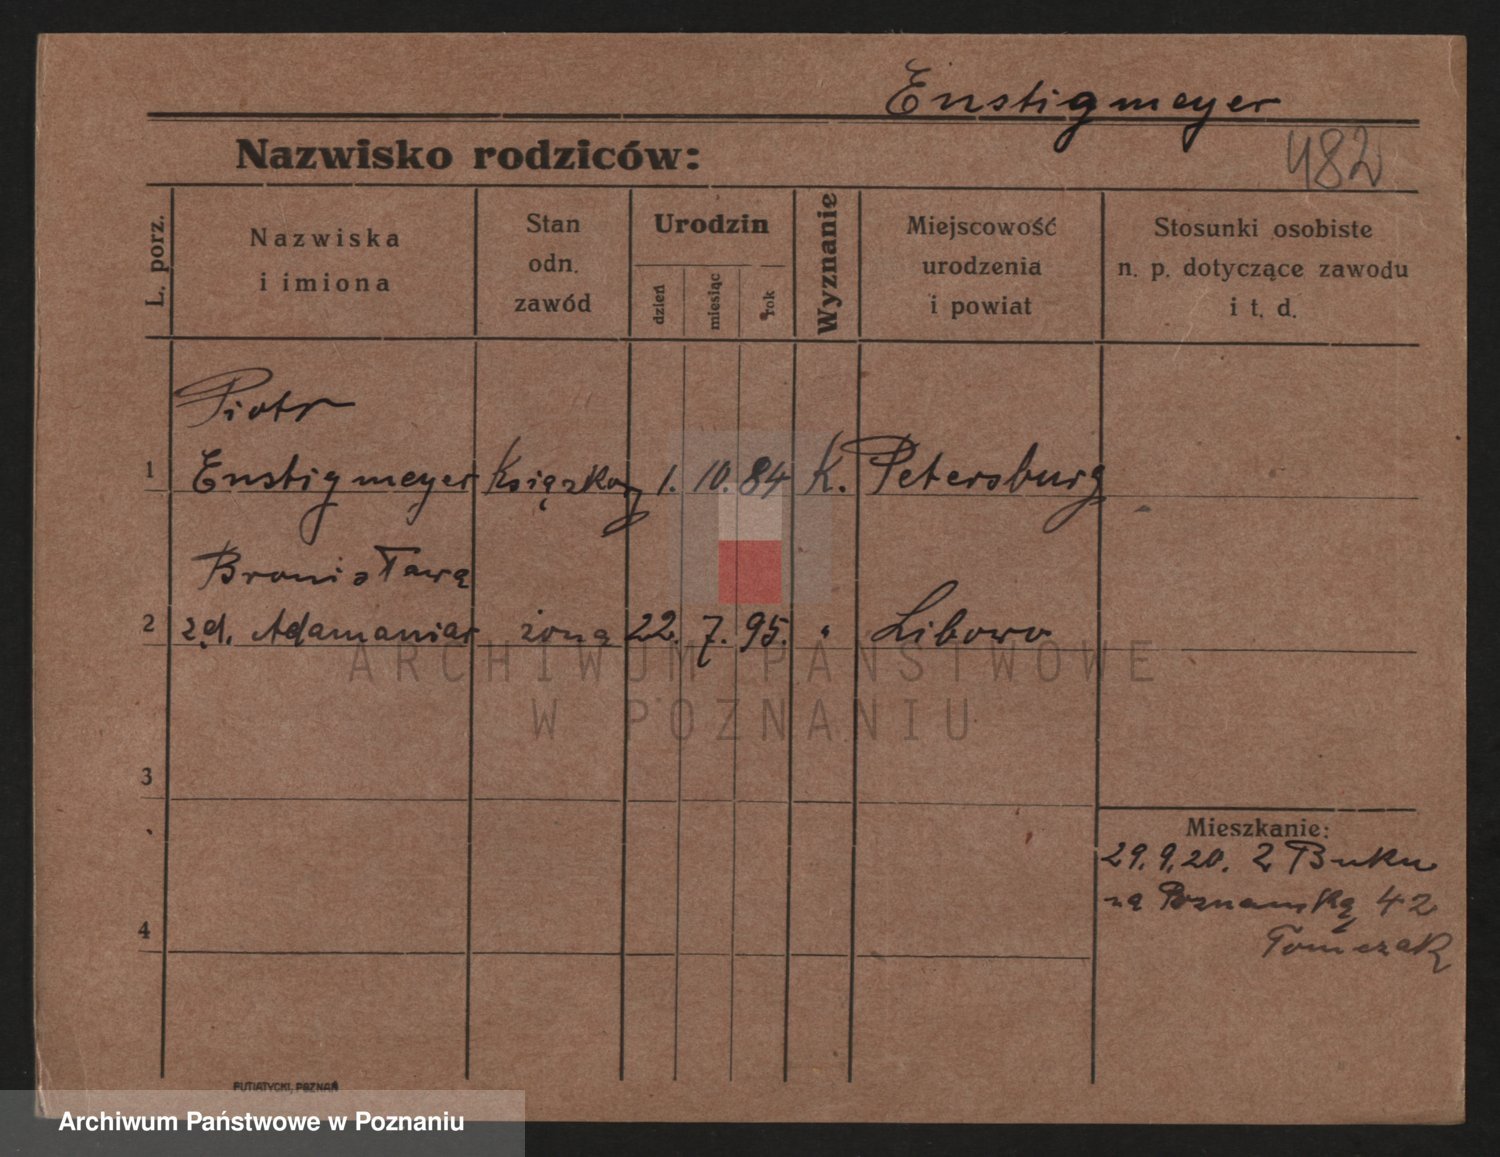 Enstigmeyer
482
Nazwisko rodziców:
L. porz.
Nazwiska
i imiona
Stan
odn.
zawód
Urodzin
dzień
miesiąc
rok
Wyznanie
Miejscowość
urodzenia
i powiat
Stosunki osobiste
n. p. dotyczące zawodu
i t. d.
Piotr
1 Enstigmeyer 1. 10. 84 K. Petersburg
Bronisława
2 zd. Adamaniar żona 22. 7. 95. " Libowo
ARCHIWUM PAŃSTWOWE
W POZNANIU
3
Mieszkanie:
29.9.20. z Buku
na Poznańską 42
Tomczak
4
PUTIATYCKI, POZNAŃ
Archiwum Państwowe w Poznaniu